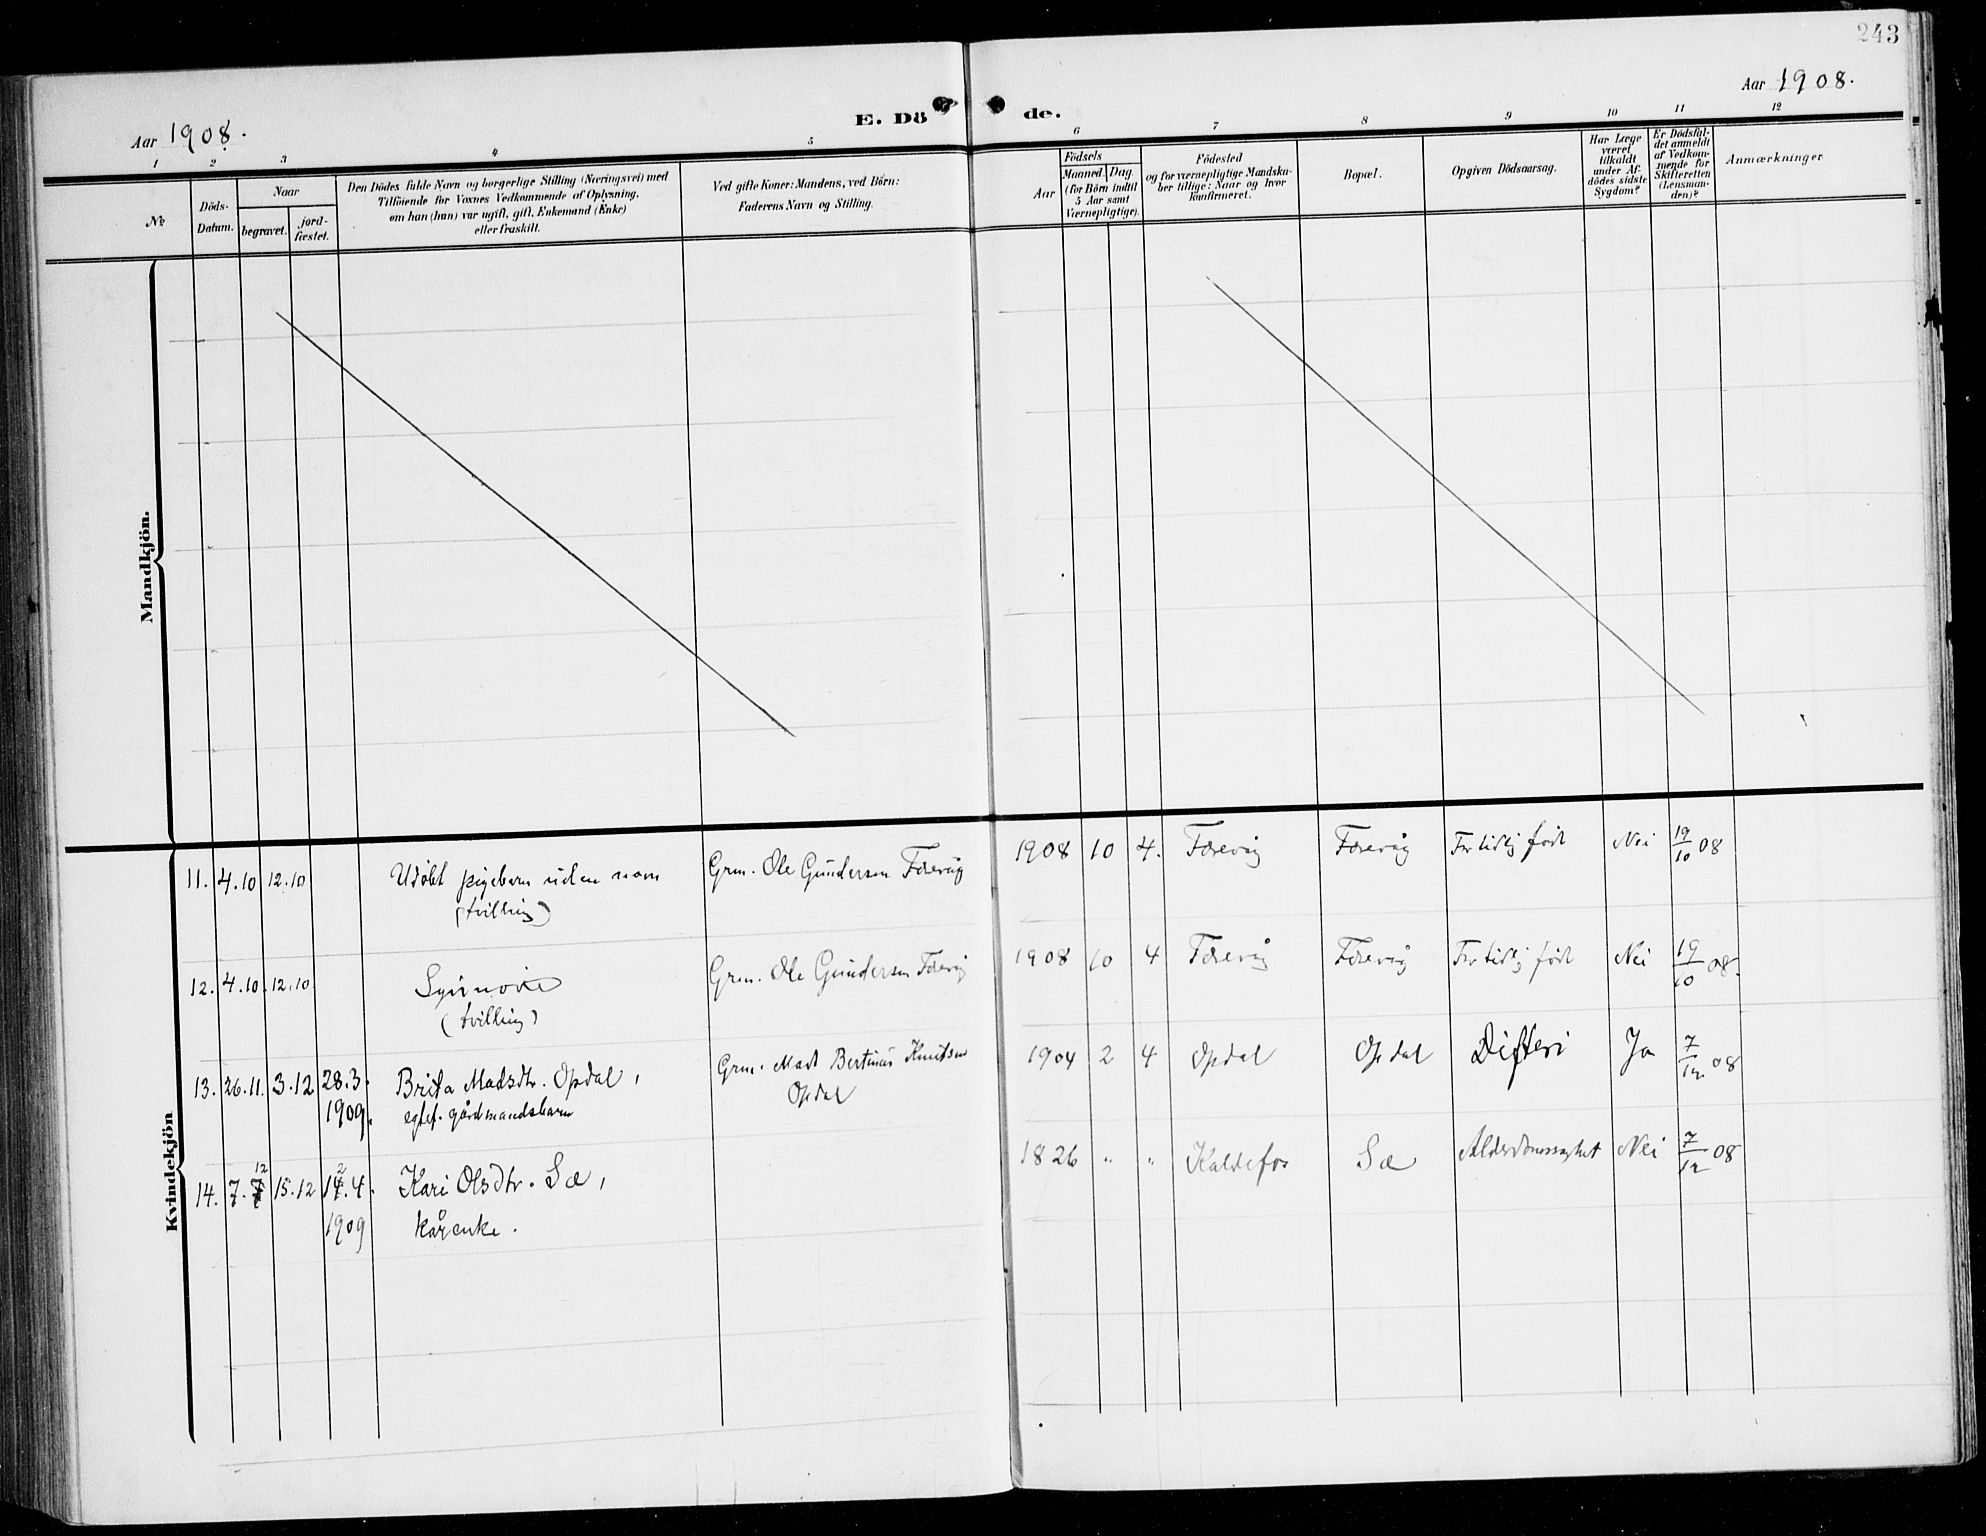 243
Aar 1908.
Aar 1908.
E. Dö de.
1 2 3 4 5 6 7 8 9 10 11 12
№
Döds-
Datum.
Naar
begravet.
jord-
fæstet.
Den Dödes fulde Navn og borgerlige Stilling (Næringsvei) med
Tilföiende for Voxnes Vedkommende af Oplysning,
om han (hun) var ugift, gift, Enkemand (Enke)
eller fraskilt.
Ved gifte Koner: Mandens, ved Børn:
Faderens Navn og Stilling.
Födsels
Aar
Maaned.
Dag.
(for Börn indtil
5 Aar samt
Værnepligtige).
Födested
og for værnepligtige Mandska-
ber tillige: Naar og hvor
konfirmeret.
Bopæl.
Opgiven Dödsaarsag.
Har Læge
været
tilkaldt
under Af-
dödes sidste
Sygdom?
Er Dödsfal-
det anmeldt
af Vedkom-
mende for
Skifteretten
(Lensman-
den)?
Anmærkninger
Mandkjön.
Kvindekjön
11. 4.10 12.10 Udöbt pigebarn uden navn Grm. Ole Gundersen 1908 10 4. For tidlig födt Nei 19/10 08
(tvilling)
12. 4.10. 12.10 Synnöve Grm. Ole Gundersen 1908 10 4 For tidlig födt Nei 19/10 08.
(tvilling)
13. 26.11. 3.12 28.3. Brita Madsdtr. Opdal, Grm. Mads Bertinus Knutsen 1904 2 4 Opdal Opdal Difteri Ja 7/12 08
1909. egtef. gårdmandsbarn Opdal
14. 7. 12 15.12 12.4. Kari Olsdtr. Sæ, 1826 " " Kaldefos Sæ Alderdomssvaghet Nei 7/12 08
1909 kårenke.